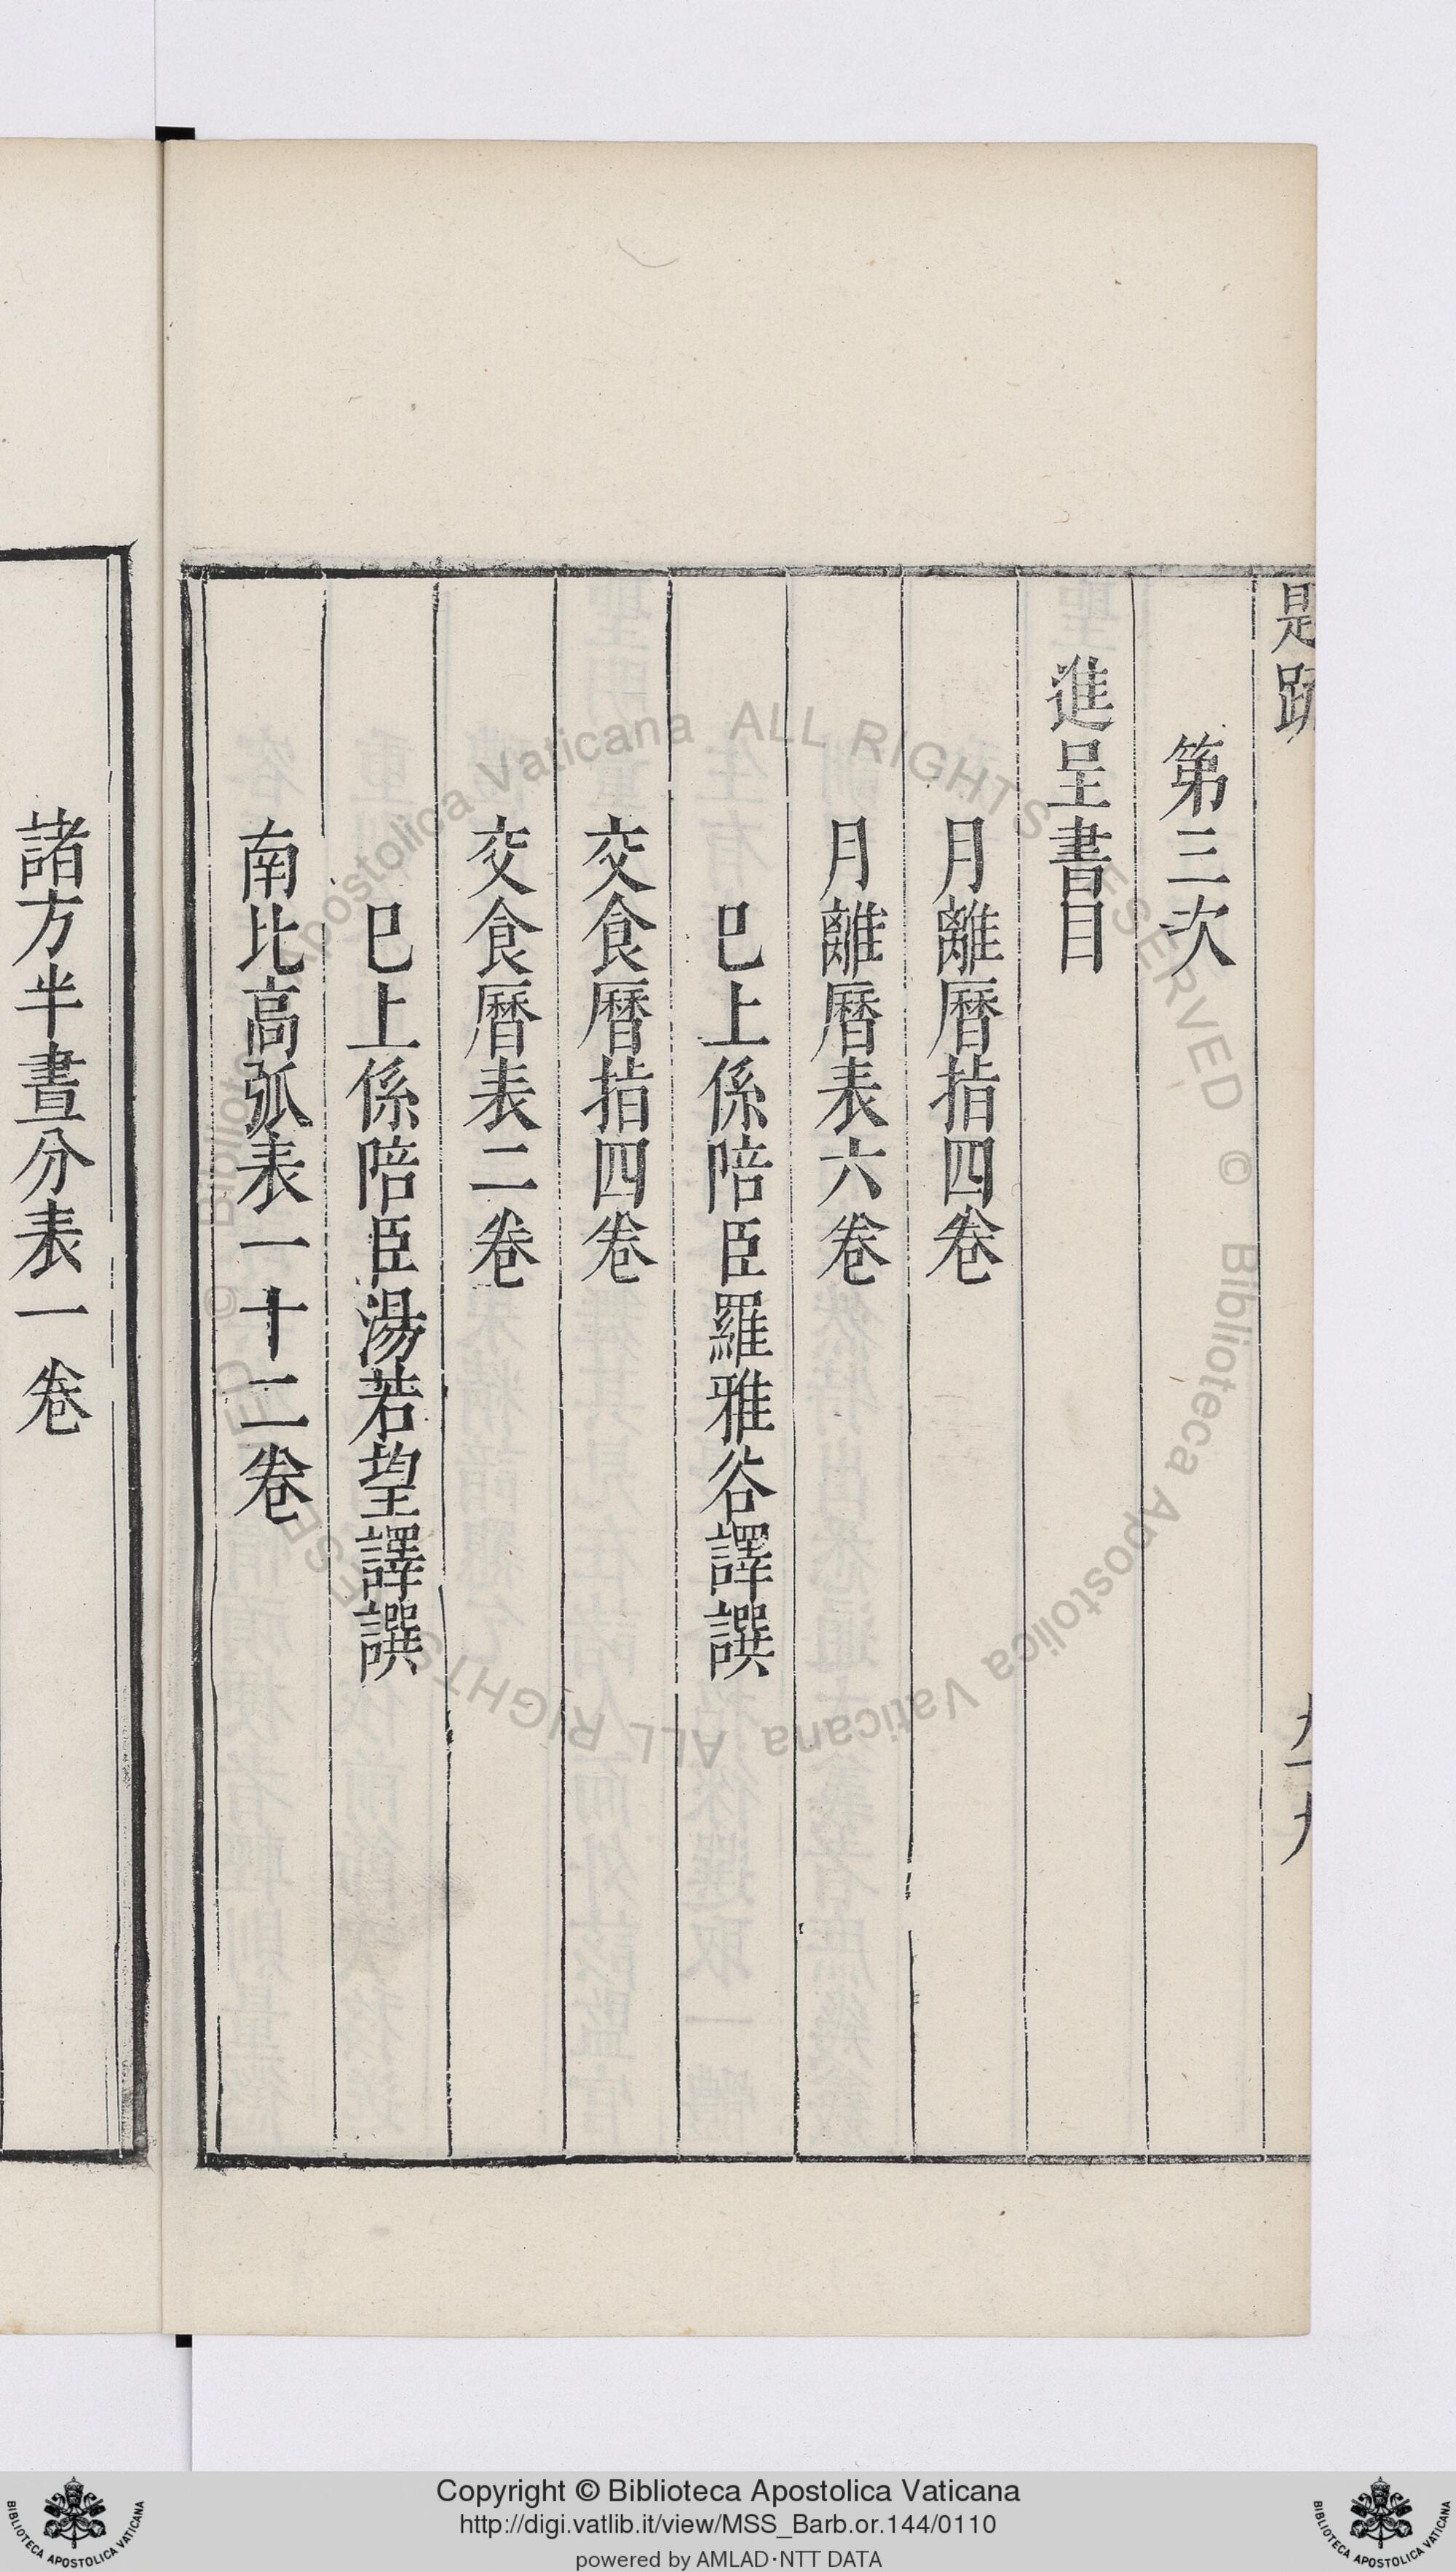 第三次
進呈書目
月離曆指四卷
月離曆表六卷
已上係陪臣羅雅谷譯譔
交食曆指四卷
交食曆表二卷
已上係陪臣湯若望譯譔
南北高弧表一十二卷
諸方半晝分表一卷
Copyright © Biblioteca Apostolica Vaticana
http://digi.vatlib.it/view/MSS_Barb.or.144/0110
powered by AMLAD·NTT DATA
BIBLIOTECA APOSTOLICA VATICANA
BIBLIOTECA APOSTOLICA VATICANA